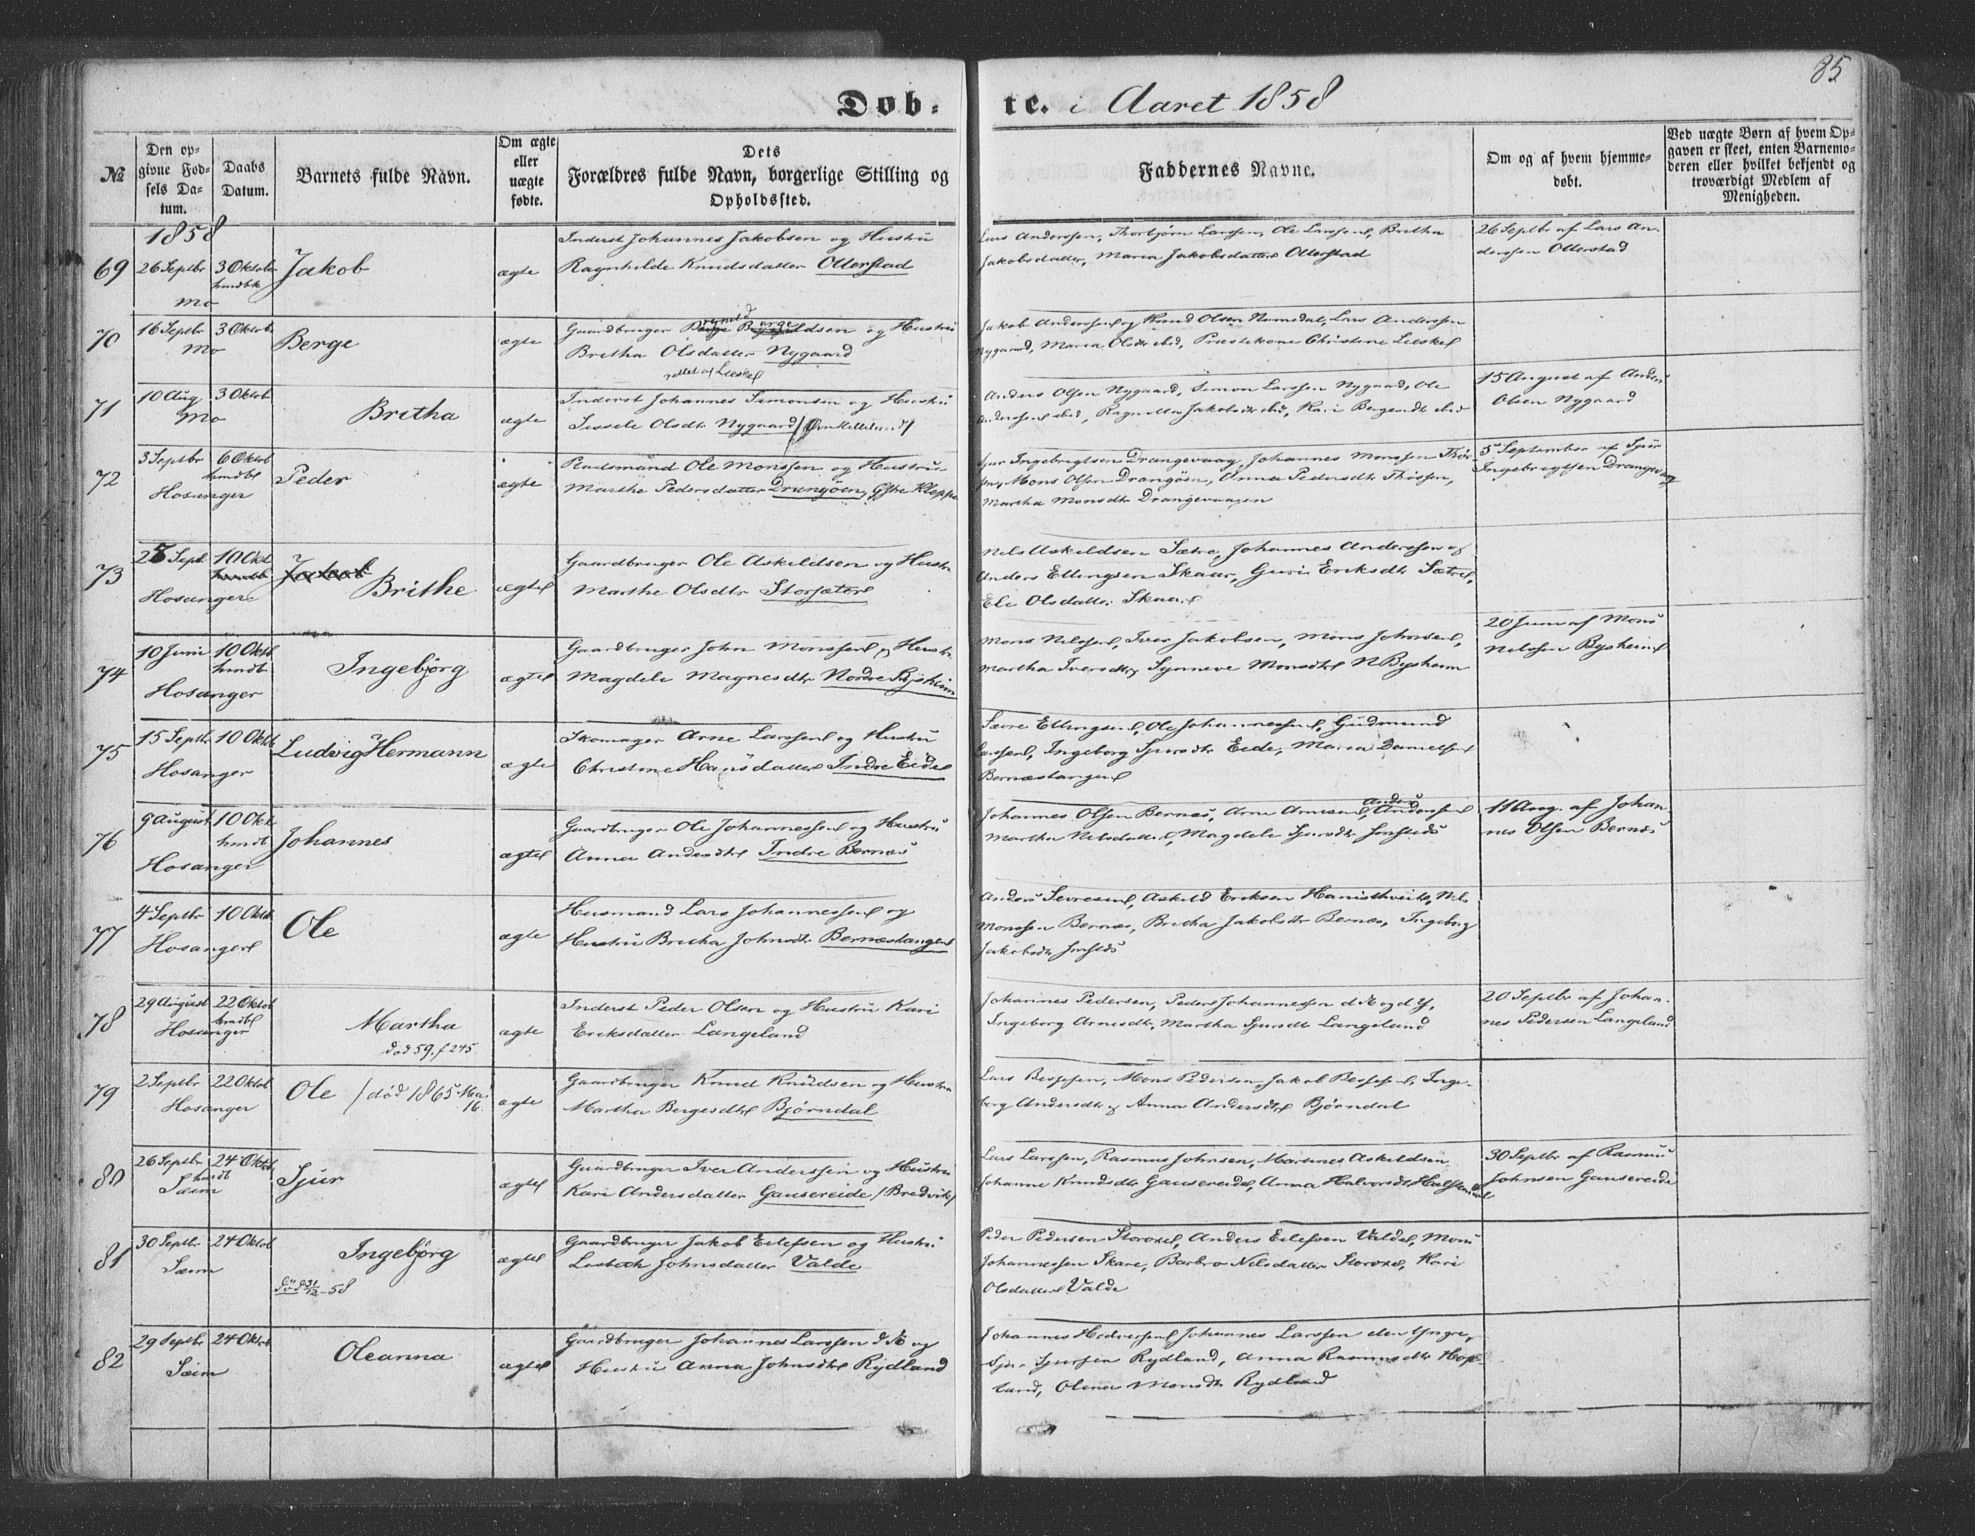 85
Døb- te. i Aaret 1858
№
Den op-
givne Fød-
sels Da-
tum.
Daabs
Datum.
Barnets fulde Navn.
Om ægte
eller
uægte
fødte.
Dets
Forældres fulde Navn, borgerlige Stilling og
Opholdssted.
Faddernes Navne.
Om og af hvem hjemme-
døbt.
Ved uægte Børn af hvem Op-
gaven er skeet, enten Barnemo-
deren eller hvilket bekjendt og
troværdigt Medlem af
Menigheden.
1858
69 26 Septbr 3 Oktober hmdbt Mo
Jakob
ægte
Inderst Johannes Jakobsen og Hustru
Ragnhilde Knudsdatter Otterstad
Lars Anderssen, Thorbjørn Larssen, Ole Larssen, Britha
Jakobsdatter, Maria Jakobsdatter Otterstad
26 Septbr af Lars An-
derssen Otterstad
70 16 Septbr 3 Oktob. Mo
Berge
ægte
Gaardbruger og Hustru
Bretha Olsdatter Nygaard
rettet af Leeskel
Jakob Anderssen og Knud Olsen Namdal, Lars Anderssen
Nygaard, Maria Olsdtr ibid, Præstekone Christine
71 10 Aug 3 Oktob. Mo
Britha
ægte
Inderst Johannes Simonsen og Hustru
Sissele Olsdtr Nygaard
Anders Olsen Nygaard, Simon Larssen Nygaard, Ole
Anderssen ibid, Ragnilla Jakobsdtr ibid, Kari Bergesdtr ibid
15 August af Anders
Olsen Nygaard
72 3 Septbr 6 Oktob hmdbt Hosanger
Peder
ægte
Ole Monssen og Hustru
Marthe Pedersdatter Drangøen,
Sjur Ingebrigtsen Drangevaag, Johannes Monssen
Mons Olsen Drangøen, Anna Pedersdtr
Martha Monsdtr Drangevaagen
5 September af Sjur
Ingebrigtsen Drangevaag
73 Sept. 10 Okt. Hosanger
Jakob Brithe
ægte
Gaardbruger Ole Askildsen og Hustru
Marthe Olsdtr Storsæter
Nils Askildsen Sætre, Johannes Anderssen og
Anders Ellingsen Skaar, Guri Eriksdtr Sætre,
Eli Olsdatter Skaar
74 10 Juni 10 Oktb. hmdbt Hosanger
Ingebjørg
ægte
Gaardbruger John Monssen og Hustru
Magdele Magnesdtr Nordre Bysheim
Mons Nilssen, Iver Jakobsen, Mons Johnsen,
Martha Iversdtr, Synneve Monsdtr N Bysheim
20 Juni af Mons
Nilssen Bysheim
75 15 Septbr 10 Oktb Hosanger
Ludvig Hermann
ægte
Skomager Arne Larssen og Hustru
Christine Hansdatter Indre Eide
Sævre Ellingsen, Ole Johannessen, Gudmund
Larssen, Ingeborg Sjursdtr Eide, Maria
Bernæstangen
76 9 August 10 Okt. hmdt Hosanger
Johannes
ægte
Gaardbruger Ole Johannessen og Hustru
Anna Andersdtr Indre Bernæs
Johannes Olsen Bernæs, Arne Arnesen, Anders Anderssen
Martha Nilsdatter, Magdele Sjursdtr
11 Aug. af Johan
nes Olsen Bernæs
77 4 Septbr 10 Oktb. Hosanger
Ole
ægte
Husmand Lars Johannessen og
Hustru Britha Johnsdtr Bernæstangen
Anders Sevresen, Askild Eriksen Hanisthveit, Nils
Monssen Bernæs, Britha Jakobsdtr Bernæs, Ingeborg
Jakobsdtr
78 29 August 22 Oktob hmdbt Hosanger
Martha
død 59. f 245
ægte
Inderst Peder Olsen og Hustru Kari
Eriksdatter Langeland
Johannes Pedersen, Peder Johannessen d Æ og d Y,
Ingeborg Arnesdtr, Martha Sjursdtr Langeland
20 Septbr af Johan-
nes Pedersen Langeland
79 2 Septbr 22 Oktob Hosanger
Ole /død 1865 Mai 16.
ægte
Gaardbruger Knud Knudsen og Hustru
Martha Bergesdtr Bjørndal
Lars Mons Pedersen, Jakob Inge-
borg Andersdtr og Anna Andersdtr Bjørndal
80 26 Septbr 24 Oktob. hmdt Sæim
Sjur
ægte
Gaardbruger Iver Anderssen og Hustru
Kari Andersdatter Gausereide /Bredvik/
Lars Larssen, Rasmus Johnsen, Martines Askildsen
Johanne Knudsdtr Gausereide, Anna Halvorsdtr
30 Septbr af Rasmus
Johnsen Gausereide
81 30 Septbr 24 Oktob Sæim
Ingebjørg
død 31/12-58
ægte
Gaardbruger Jakob Eilefsen og Hustru
Lisbeth Johnsdatter Valde
Peder Pedersen Storoxel, Anders Eilefsen Valde, Mons
Johannessen Skare, Barbro Nilsdatter Storoxel, Kari
Olsdatter Valde
82 29 Septbr 24 Oktob Sæim
Oleanna
ægte
Gaardbruger Johannes Larssen d Æ og
Hustru Anna Johnsdtr Rydland
Johannes Johannes Larssen den Yngre,
Sjur Sjursen Rydland, Anna Rasmusdtr Hop-
land, Olina Monsdtr Rydland